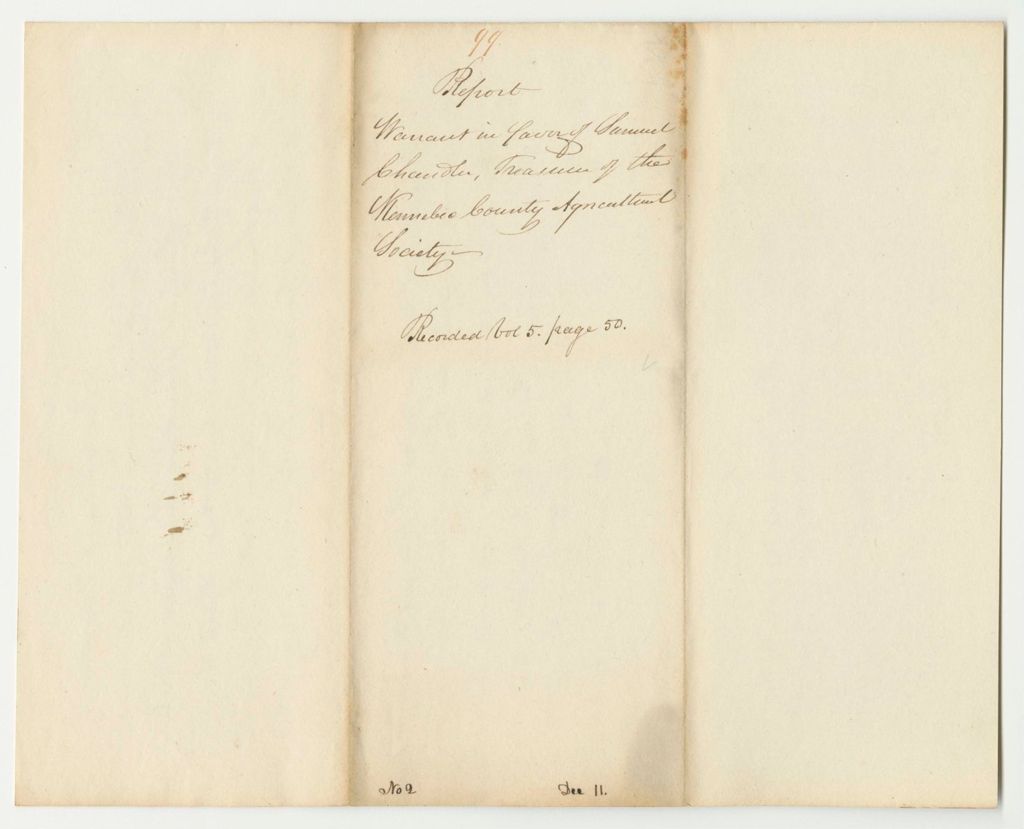 99
Report
Warrant in favor of Samuel
Chandler, Treasurer of the
Kennebec County Agricultural
Society
Recorded Vol 5. page 50.
No 2 Dec 11.